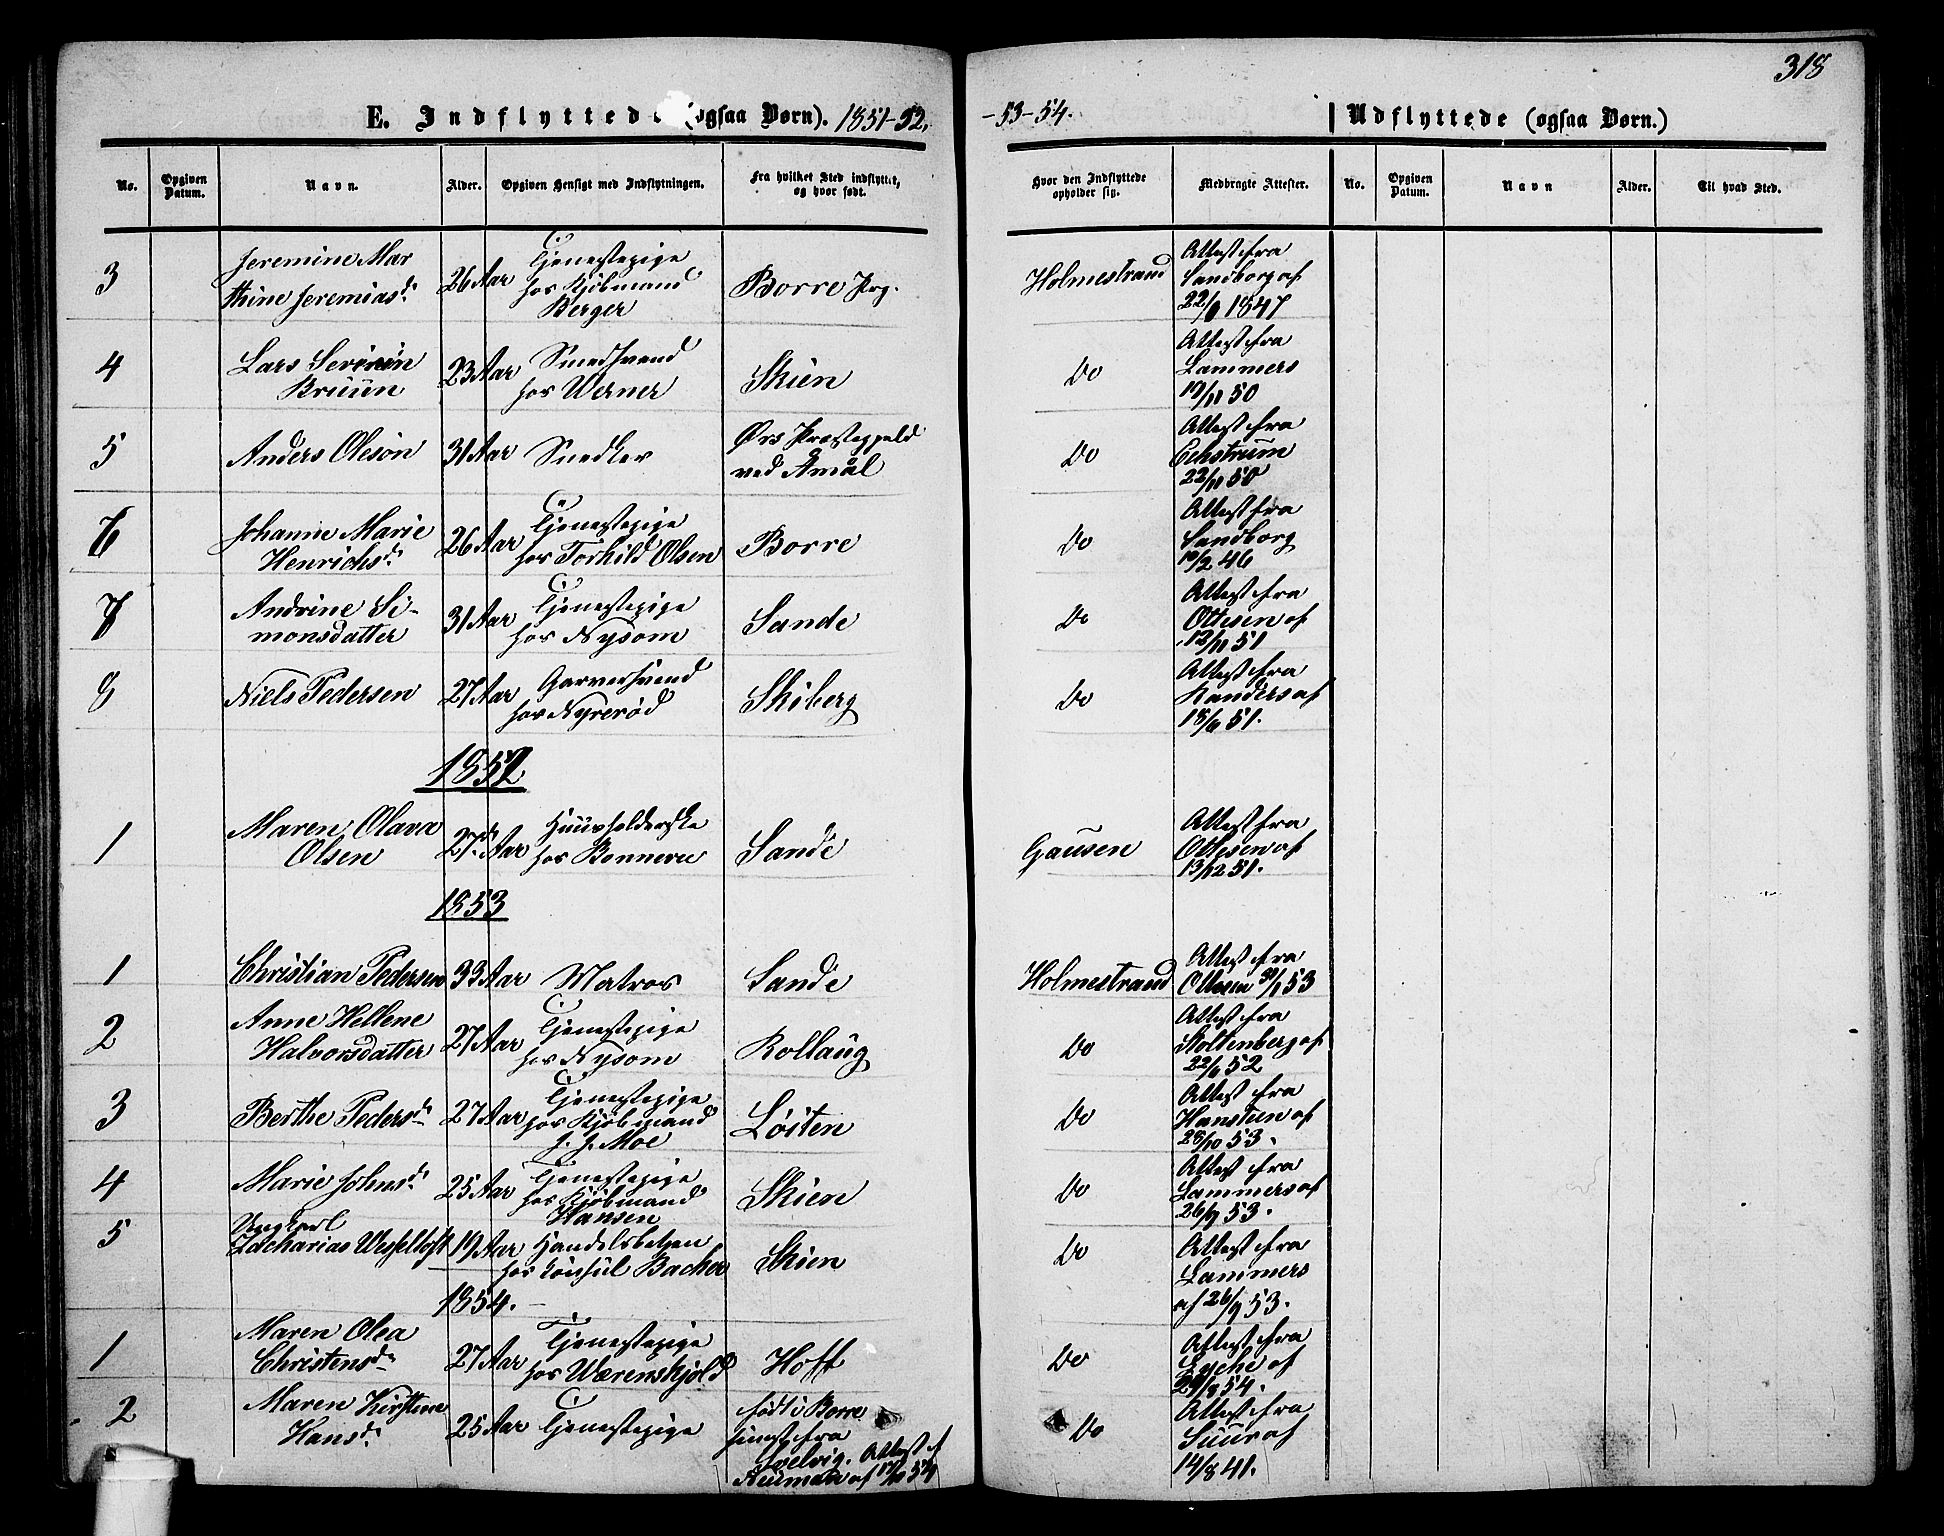 318
E. Indflyttede (ogsaa Børn). 1851-52. -53-54. Udflyttede (ogsaa Børn.)
No. Opgiven Datum. Navn. Alder. Opgiven Hensigt med Indflytningen. Fra hvilket Sted indflyttet, og hvor født. Hvor den Indflyttede opholder sig. Medbragte Attester. No. Opgiven Datum. Navn Alder. Til hvad Sted.
3 Jeremine Mar
thine Jeremiasd. 26 Aar Tjenestepige
hos Kjöbmand
Berger Borre Prg. Holmestrand Attest fra
Sandborg af
22/9 1847
4 Lars Severin
Bruun 23 Aar Smedsvend
hos Werner Skien Do Attest fra
Lammers
19/11 50
5 Anders Oleson 31 Aar Snedker Ørs Præstegjeld
ved Åmål Do Attest fra
Echstrum
22/11 50
6 Johanne Marie
Henrichsd. 26 Aar Tjenestepige
hos Torkild Olsen Borre Do Attest fra
Sandborg
10/2 46
7 Andrine Si-
monsdatter 31 Aar Tjenestepige
hos Nysom Sande Do Attest fra
Ottesen af
12/11 51
8 Niels Pedersen 27 Aar Garversvend
hos Nyrerød Skiberg Do Attest fra
af
18/6 51.
1852
1 Maren Olava
Olsen 27 Aar Huusholderske
hos Bonnevie Sande Gausen Attest fra
Ottesen af
13/12 51.
1853
1 Christian Pedersen 33 Aar Matros Sande Holmestrand Attest fra
Ottesen 31/1 53
2 Anne Hellene
Halvorsdatter 27 Aar Tjenestepige
hos Nysom Rollaug Do Attest fra
Stoltenberg af
22/6 52
3 Berthe Pedersd. 27 Aar Tjenestepige
hos Kjöbmand
J. J. Moe Löiten Do Attest fra
Hansteen af
28/10 53.
4 Marie Johnsd. 25 Aar Tjenestepige
hos Kjöbmand
Hansen Skien Do Attest fra
Lammers af
26/9 53.
5 Ungkarl
Zacharias Wesseltoft 19 Aar Handelsbetjen
hos Consul Backer Skien Do Attest fra
Lammers
af 26/9 53.
1854.
1 Maren Olea
Christensd. 27 Aar Tjenestepige
hos Wærenskjold Hoff Do Attest fra
Eyche af
29/8 54.
2 Maren Kirstine
Hansd. 25 Aar Tjenestepige født i Borre
sinest fra
Svelvig. Attest f
Neuman af 17/10 54 Do Attest fra
Suur af
14/8 41.